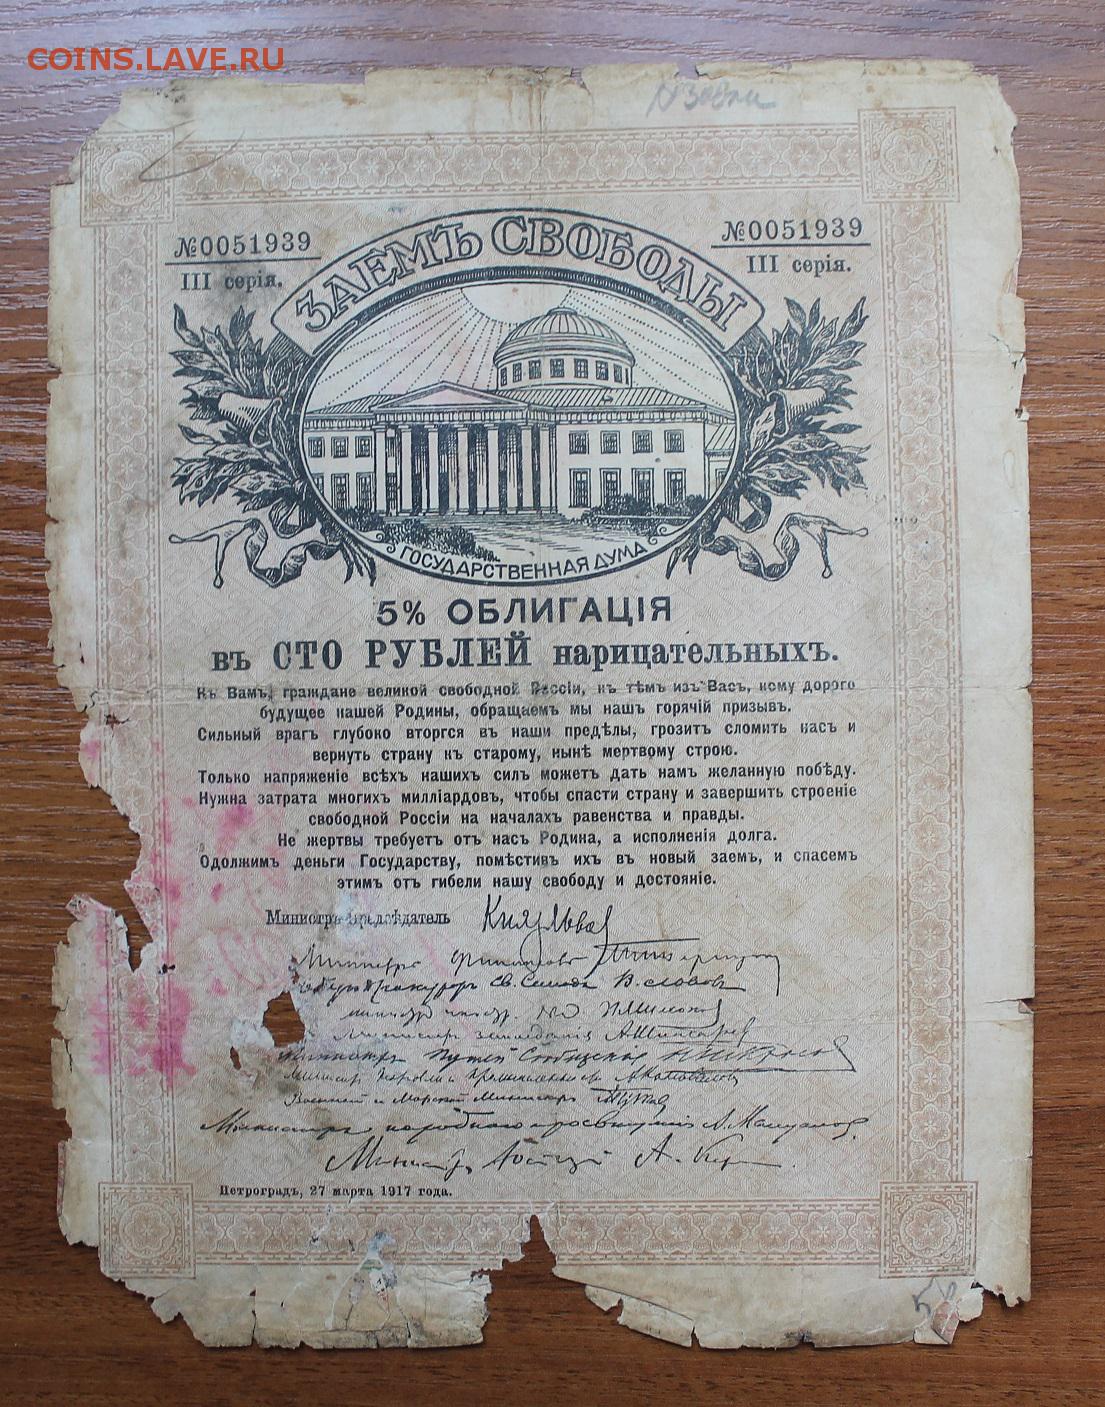 COINS.LAVE.RU
№0051939
III серія.
№0051939
III серія.
ЗАЕМЪ СВОБОДЫ
ГОСУДАРСТВЕННАЯ ДУМА
5% ОБЛИГАЦІЯ
въ СТО РУБЛЕЙ нарицательныхъ.
Къ Вамъ, граждане великой свободной Россіи, къ тѣмъ изъ Васъ, кому дорого
будущее нашей Родины, обращаемъ мы нашъ горячій призывъ.
Сильный врагъ глубоко вторгся въ наши предѣлы, грозитъ сломить насъ и
вернуть страну къ старому, нынѣ мертвому строю.
Только напряженіе всѣхъ нашихъ силъ можетъ дать намъ желанную побѣду.
Нужна затрата многихъ милліардовъ, чтобы спасти страну и завершить строеніе
свободной Россіи на началахъ равенства и правды.
Не жертвы требуетъ отъ насъ Родина, а исполненія долга.
Одолжимъ деньги Государству, помѣстивъ ихъ въ новый заемъ, и спасемъ
этимъ отъ гибели нашу свободу и достояніе.
Министръ-Предсѣдатель Кн Львов
Министръ финансовъ
Оберъ Прокуроръ Св. Синода В. Львов
Министръ
Министръ земледѣлія А Шингарев
Министръ Путей Сообщенія Н Некрасов
Министръ Торговли и Промышленности А Коновалов
Военный и Морской Министръ
Министръ народнаго просвѣщенія А. Мануйлов
Министръ Юстиціи А. Кер
Петроградъ, 27 марта 1917 года.